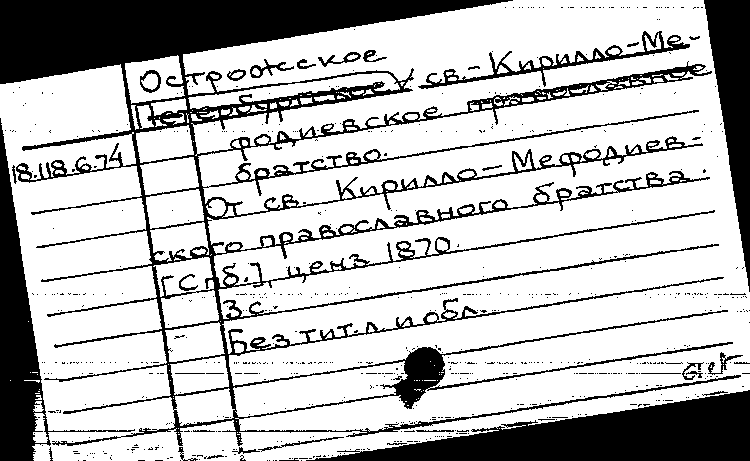 Острожское
Петербургское св.-Кирилло-Ме-
фодиевское православное
братство.
18.118.6.74
От св. Кирилло-Мефодиев-
ского православного братства.
[Спб.], ценз 1870.
3 с.
Без тит. л. и обл.